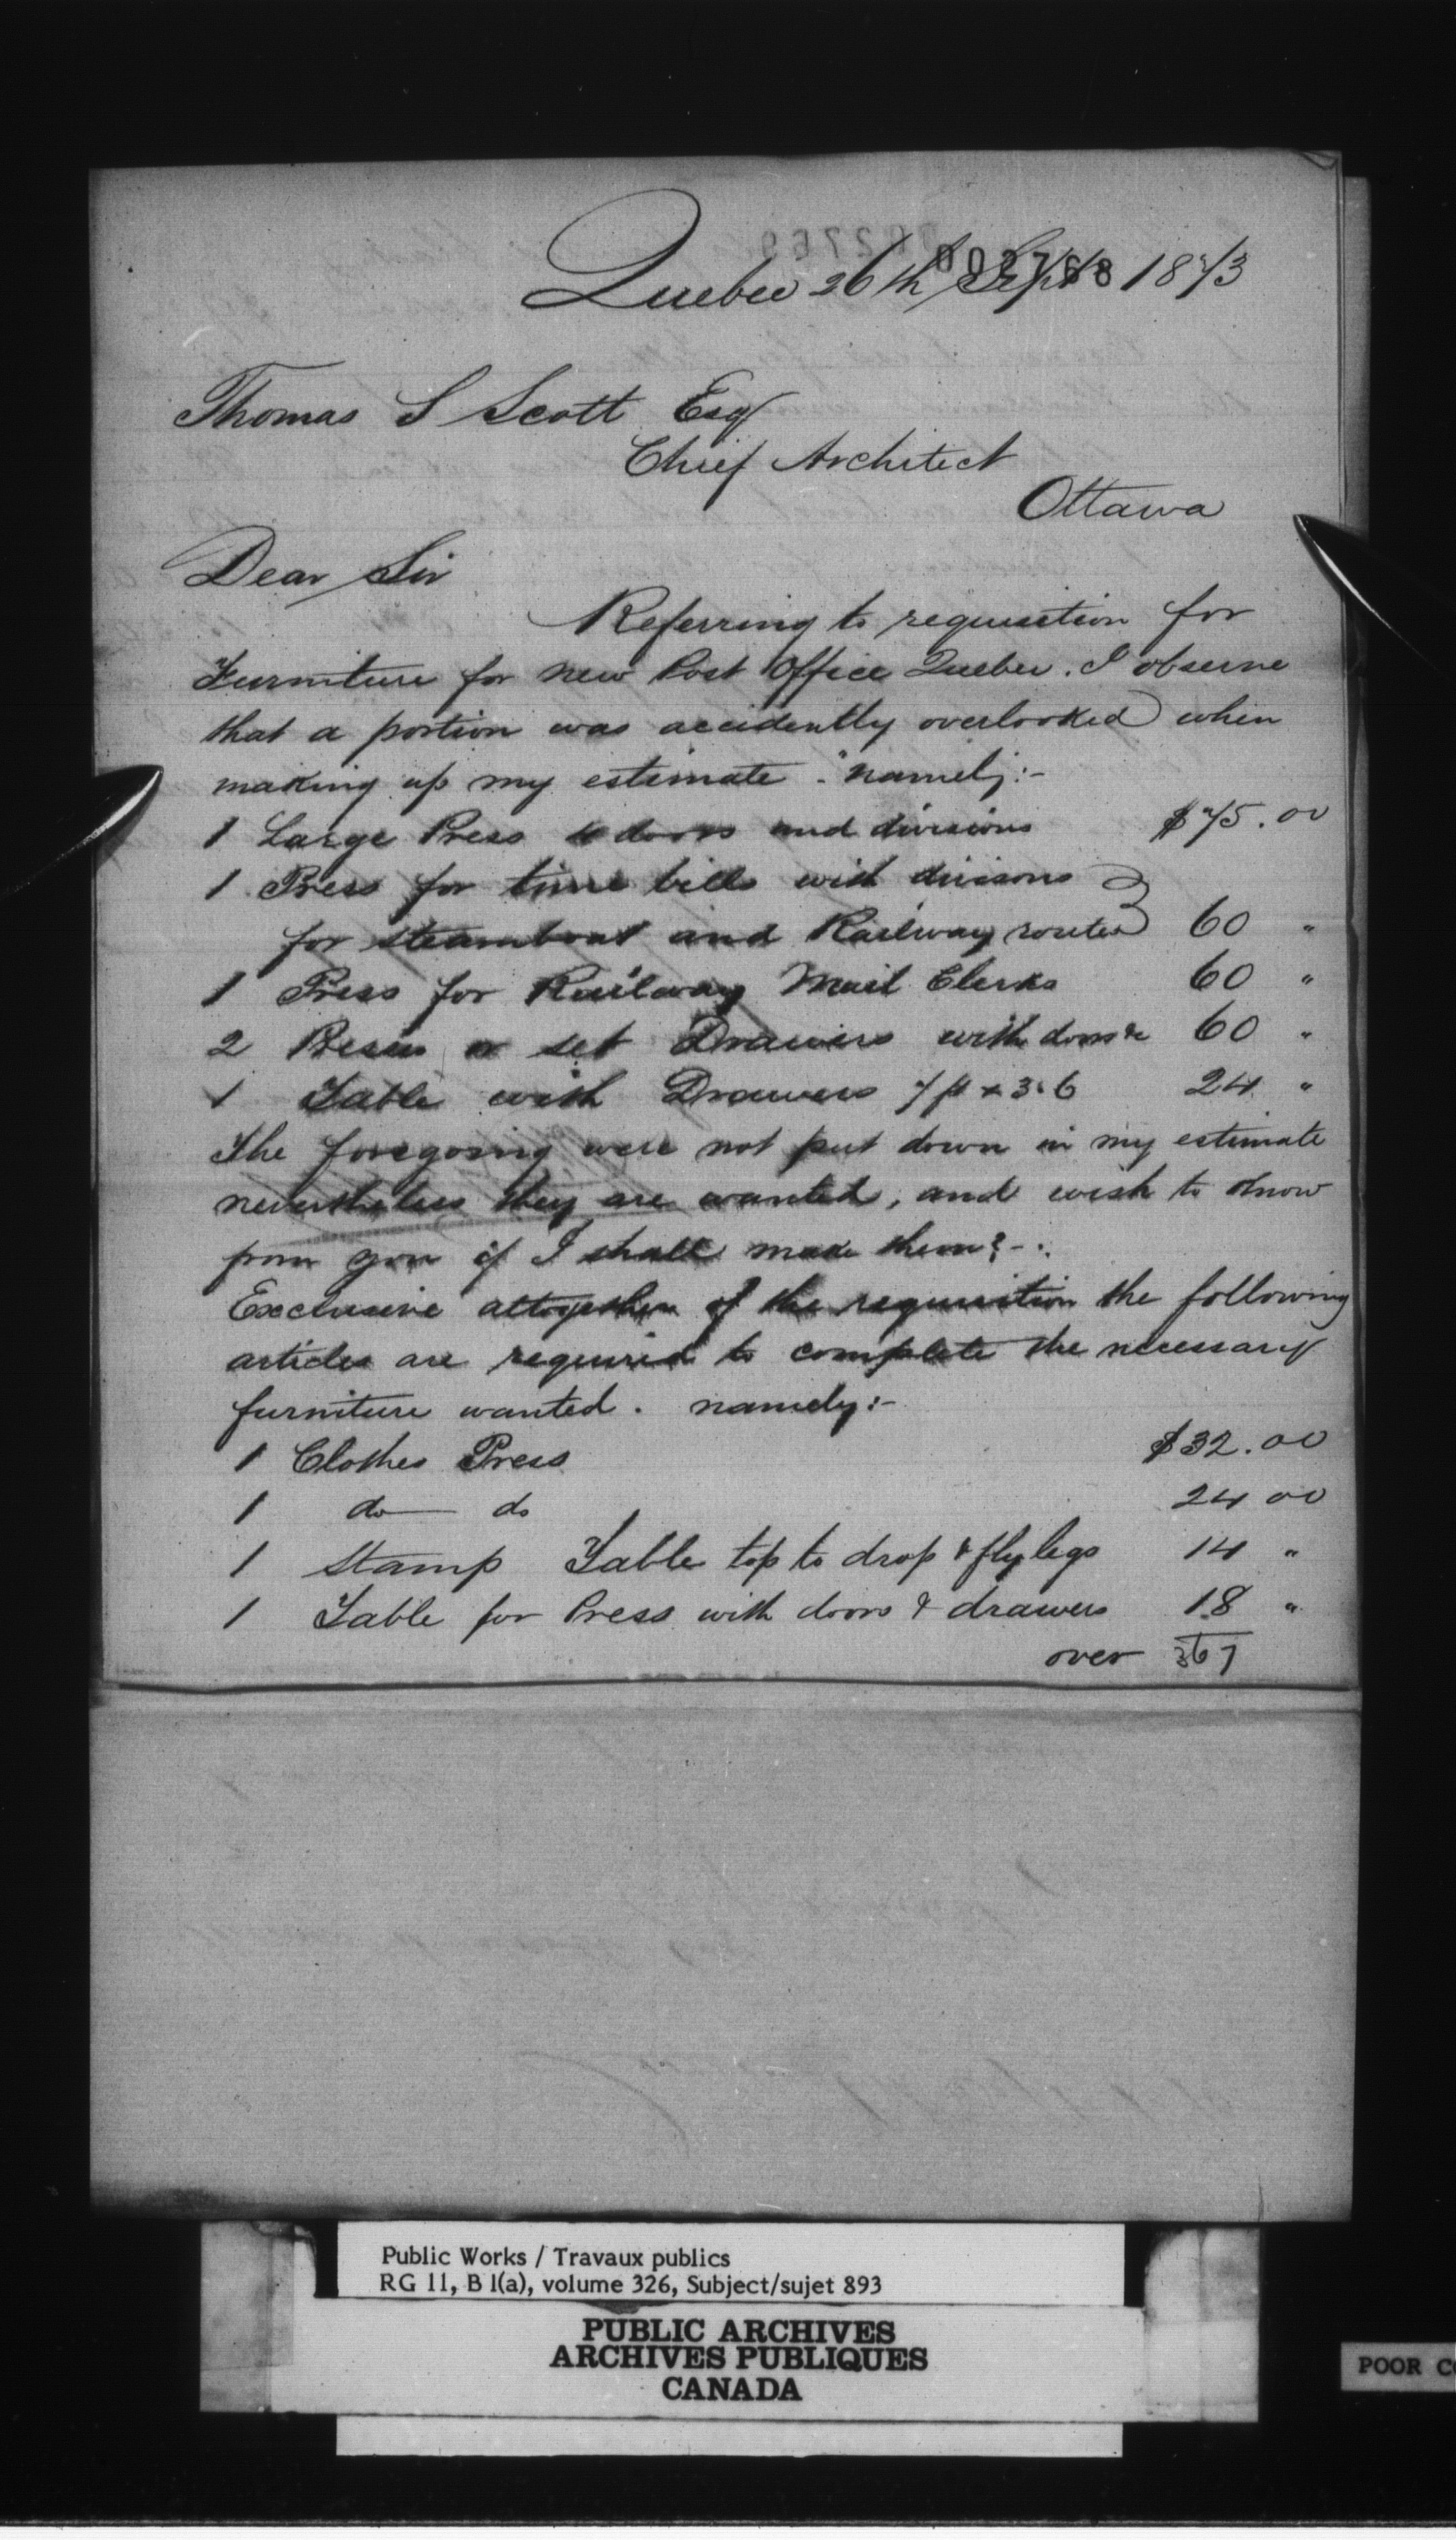 Quebec 26th Sept 1873
Thomas S Scott Esq
Chief Architect
Ottawa
Dear Sir
Referring to requisition for
Furniture for new Post Office Quebec. I observe
that a portion was accidently overlooked when
making up my estimate. namely:-
1 Large Press 4 doors and divisions $75.00
1 Press for time bills with divisons
for steamboat and Railway routes 60 "
1 Press for Railway Mail Clerks 60 "
2 set Drawers with doors & 60 "
1 Table with Drawers 7ft x 3.6 24 "
The foregoing were not put down in my estimate
nevertheless they are wanted, and wish to know
from you if I shall make them?-.
Exclusive altogether of the requisition the following
articles are required to complete the necessary
furniture wanted. namely:-
1 Clothes Press $32.00
1 do do 24 00
1 Stamp Table top to drop & fly legs 14 "
1 Table for Press with doors & drawers 18 "
over 367
Public Works / Travaux publics
RG 11, B 1(a), volume 326, Subject/sujet 893
PUBLIC ARCHIVES
ARCHIVES PUBLIQUES
CANADA
POOR